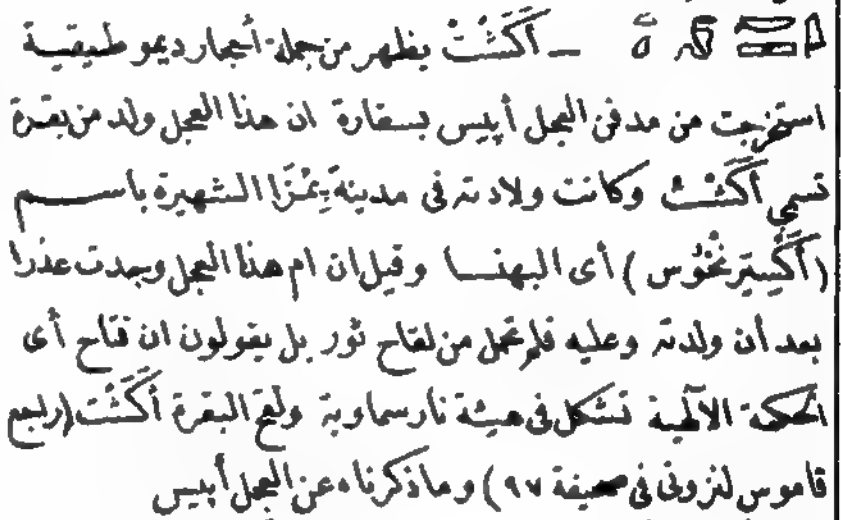 ــ أَكَثِتْ يظهر من جملة أحجار ديموطيقية
استخرجت من مدفن العجل أپيس بسقارة ان هذا العجل ولد من بقرة
تسمى أَكَثِت وكانت ولادته فى مدينة پِمْزَا الشهيرة باسم
(أُكْسِيْرِنْخُوس) أى البهنسا وقيل ان ام هذا العجل وجدت عذرا
بعد أن ولدته وعليه فلم تحمل من لقاح ثور بل يقولون ان فتاح أى
الحكمة الآلهية تشكل فى هيئة نار سماوية ولقح البقرة أَكَثِت (راجع
قاموس لنزونى فى صحيفة ٩٧) وما ذكرناه عن العجل أپيس